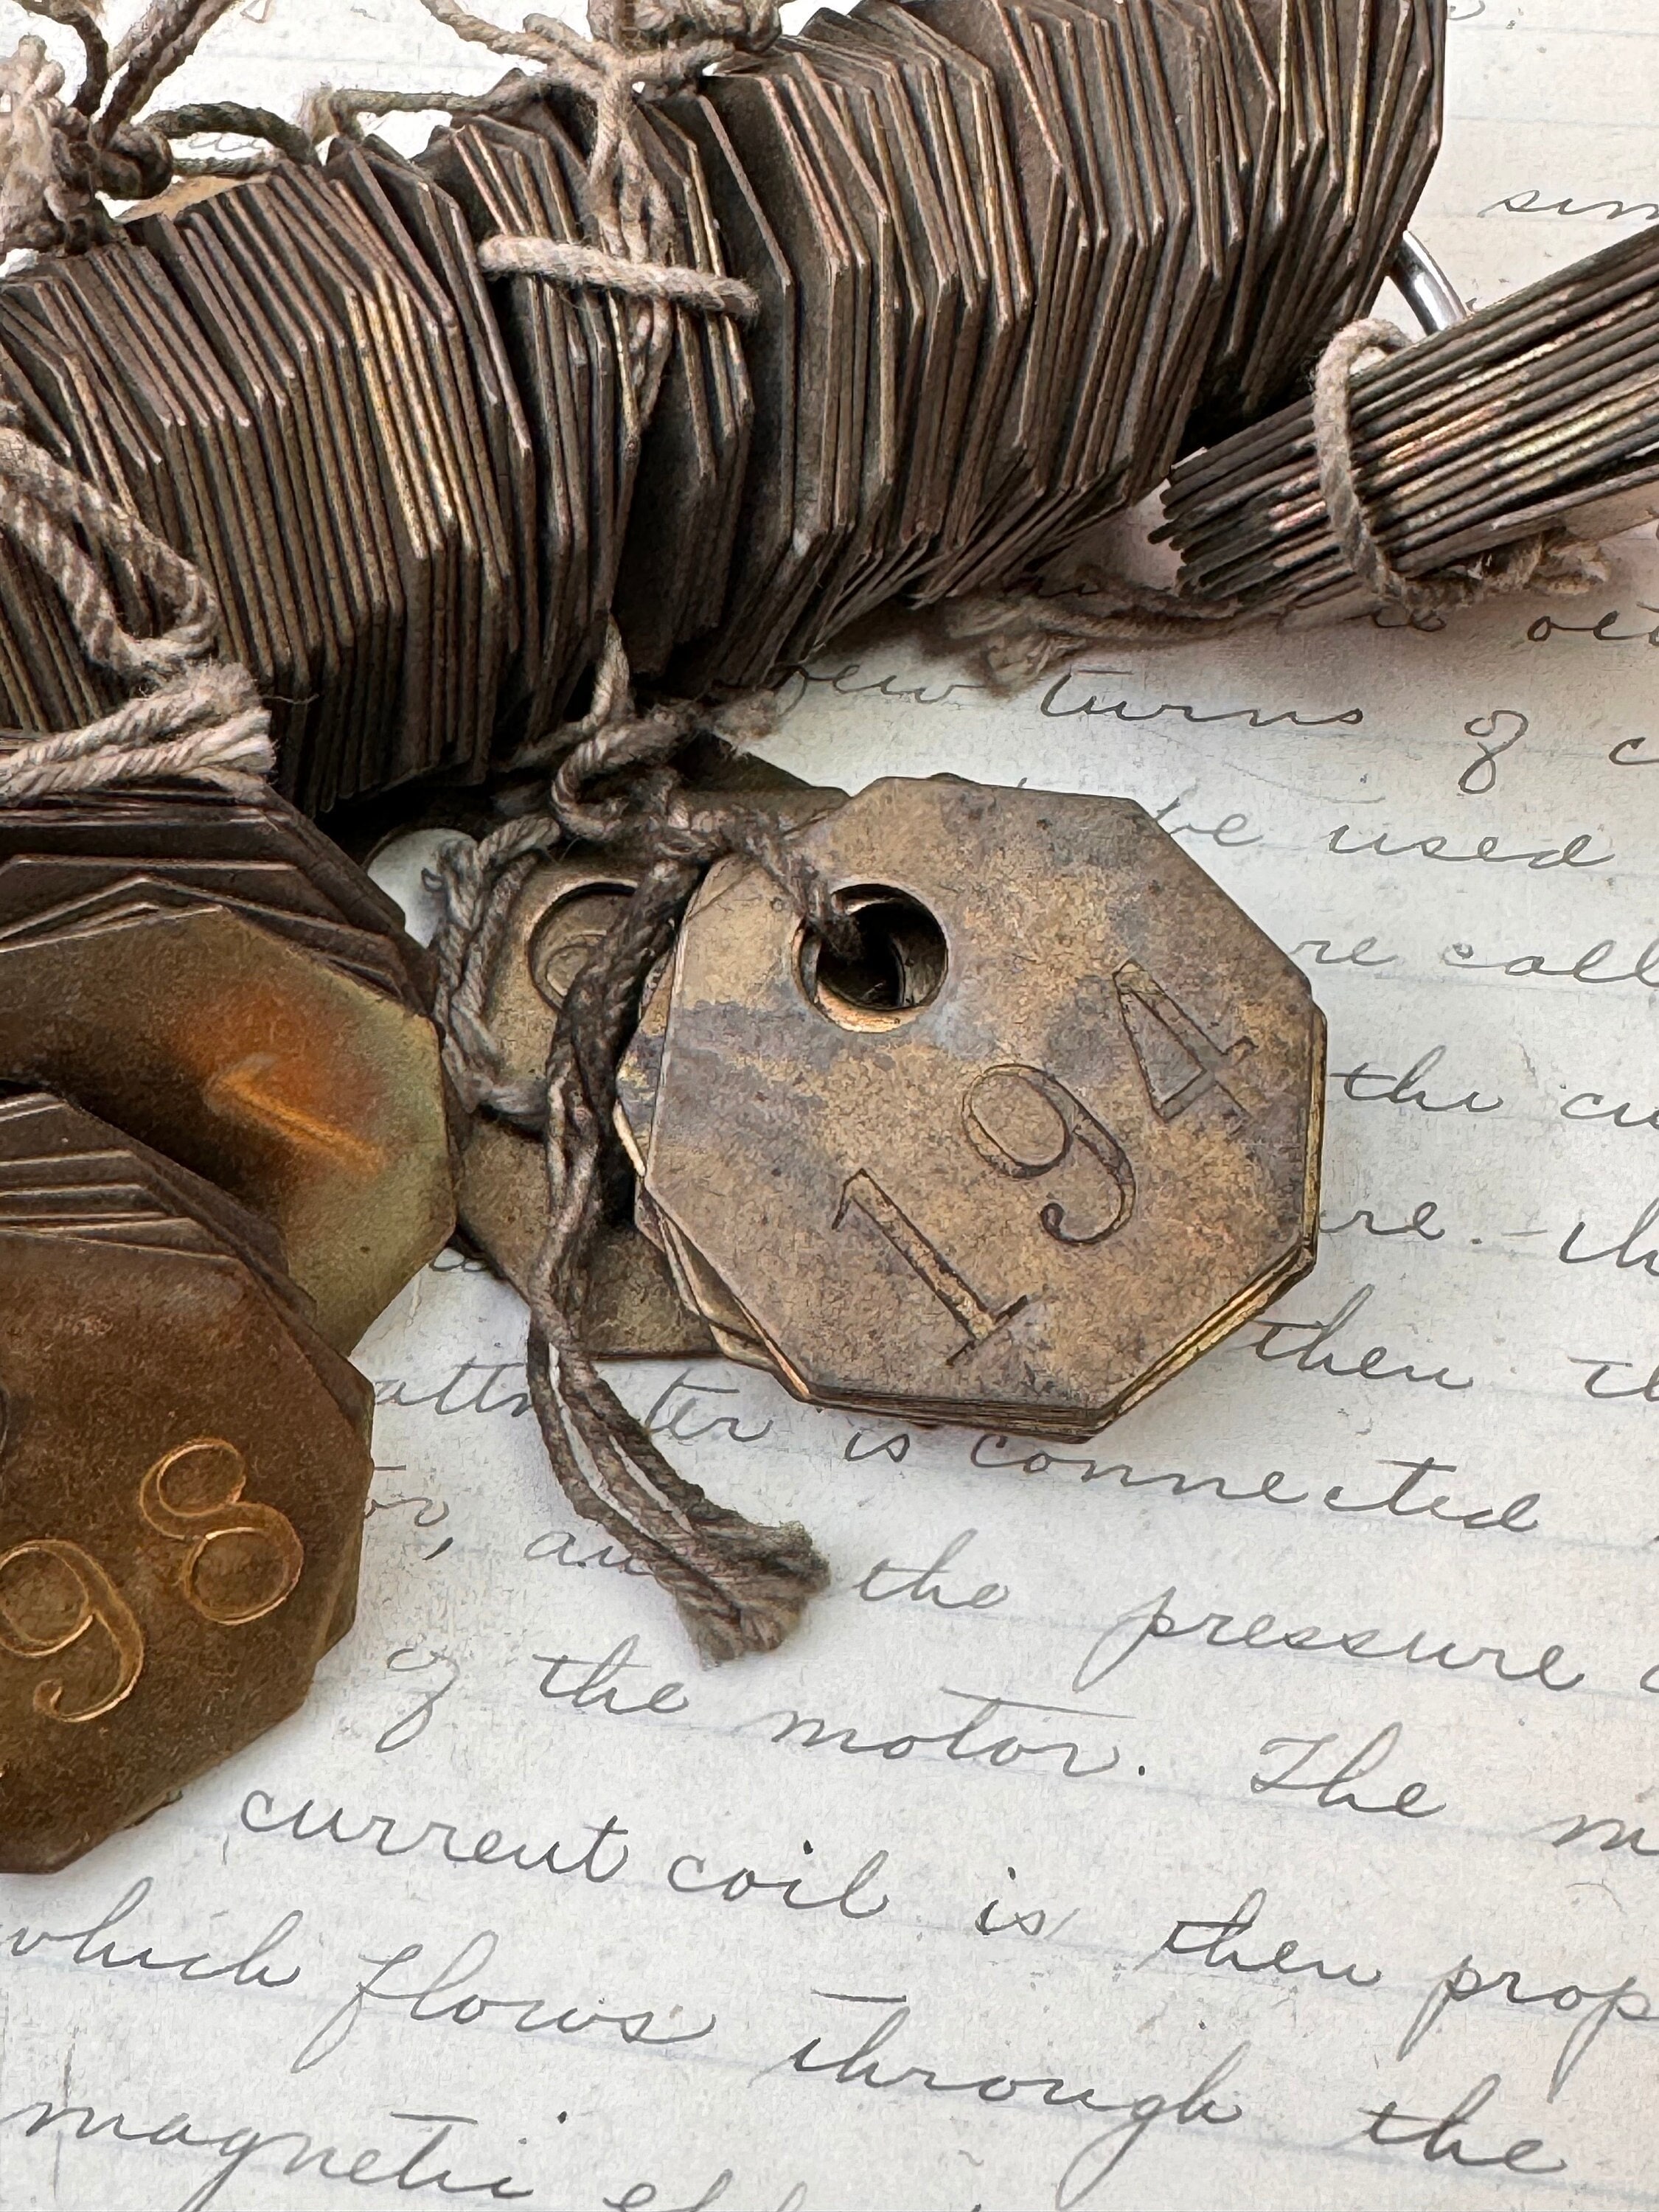 sim
few turns of c
be used
re call
the cu
are. th
then th
attm ter is connected
or, an the pressure
of the motor. The m
current coil is then prop
which flows through the
magnetic
194
1
98